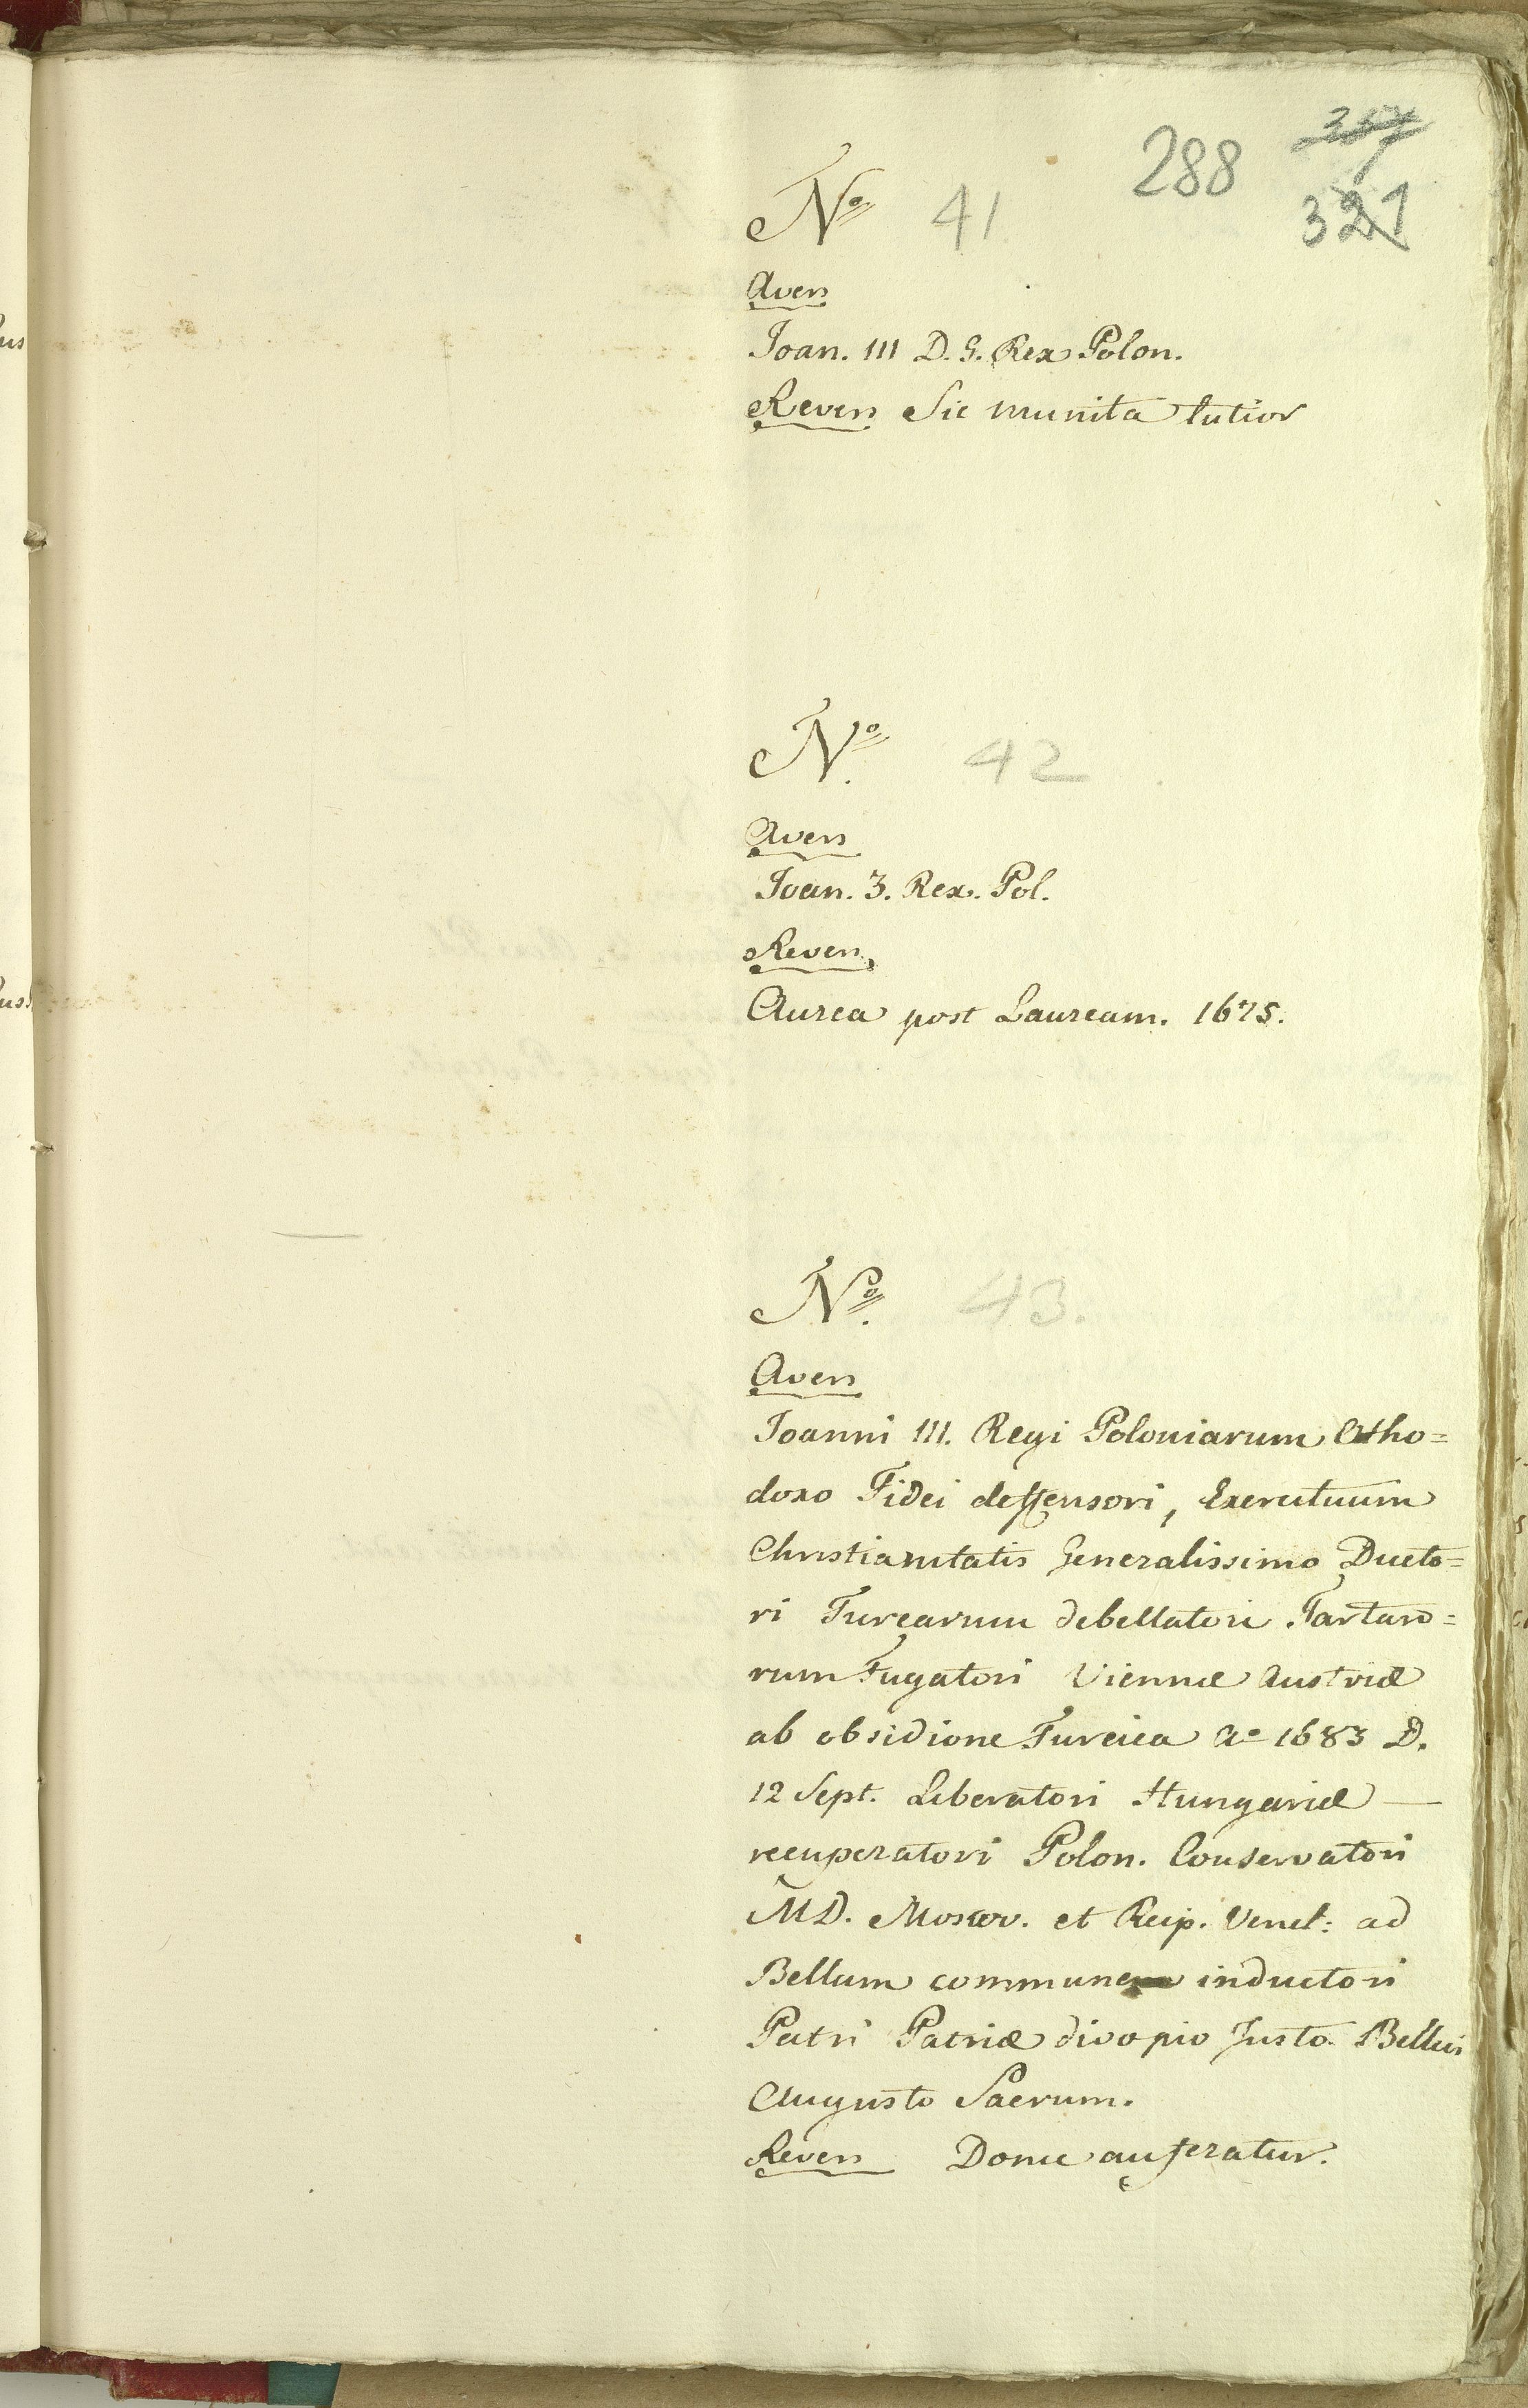 288
321
Nº 41
Avers
Joan. III D. G. Rex Polon.
Revers Sic munita tutior
Nº 42
Avers
Joan. 3. Rex. Pol.
Revers
Aurea post Lauream. 1675.
Nº 43.
Avers
Joanni III. Regi Poloniarum Otho=
doxo Fidei deffensori, Exercituum
Christianitatis Generalissimo Ducto=
ri Turcarum debellatori Tartaro=
rum Fugatori Viennæ Austriæ
ab obsidione Turcica Aº 1683 D.
12 Sept. Liberatori Hungariæ —
recuperatori Polon. Conservatori
MD. Moscov. et Reip. Venet: ad
Bellum commune inductori
Patri Patriæ divo pio Justo
Augusto Sacrum.
Revers Donec auferatur.